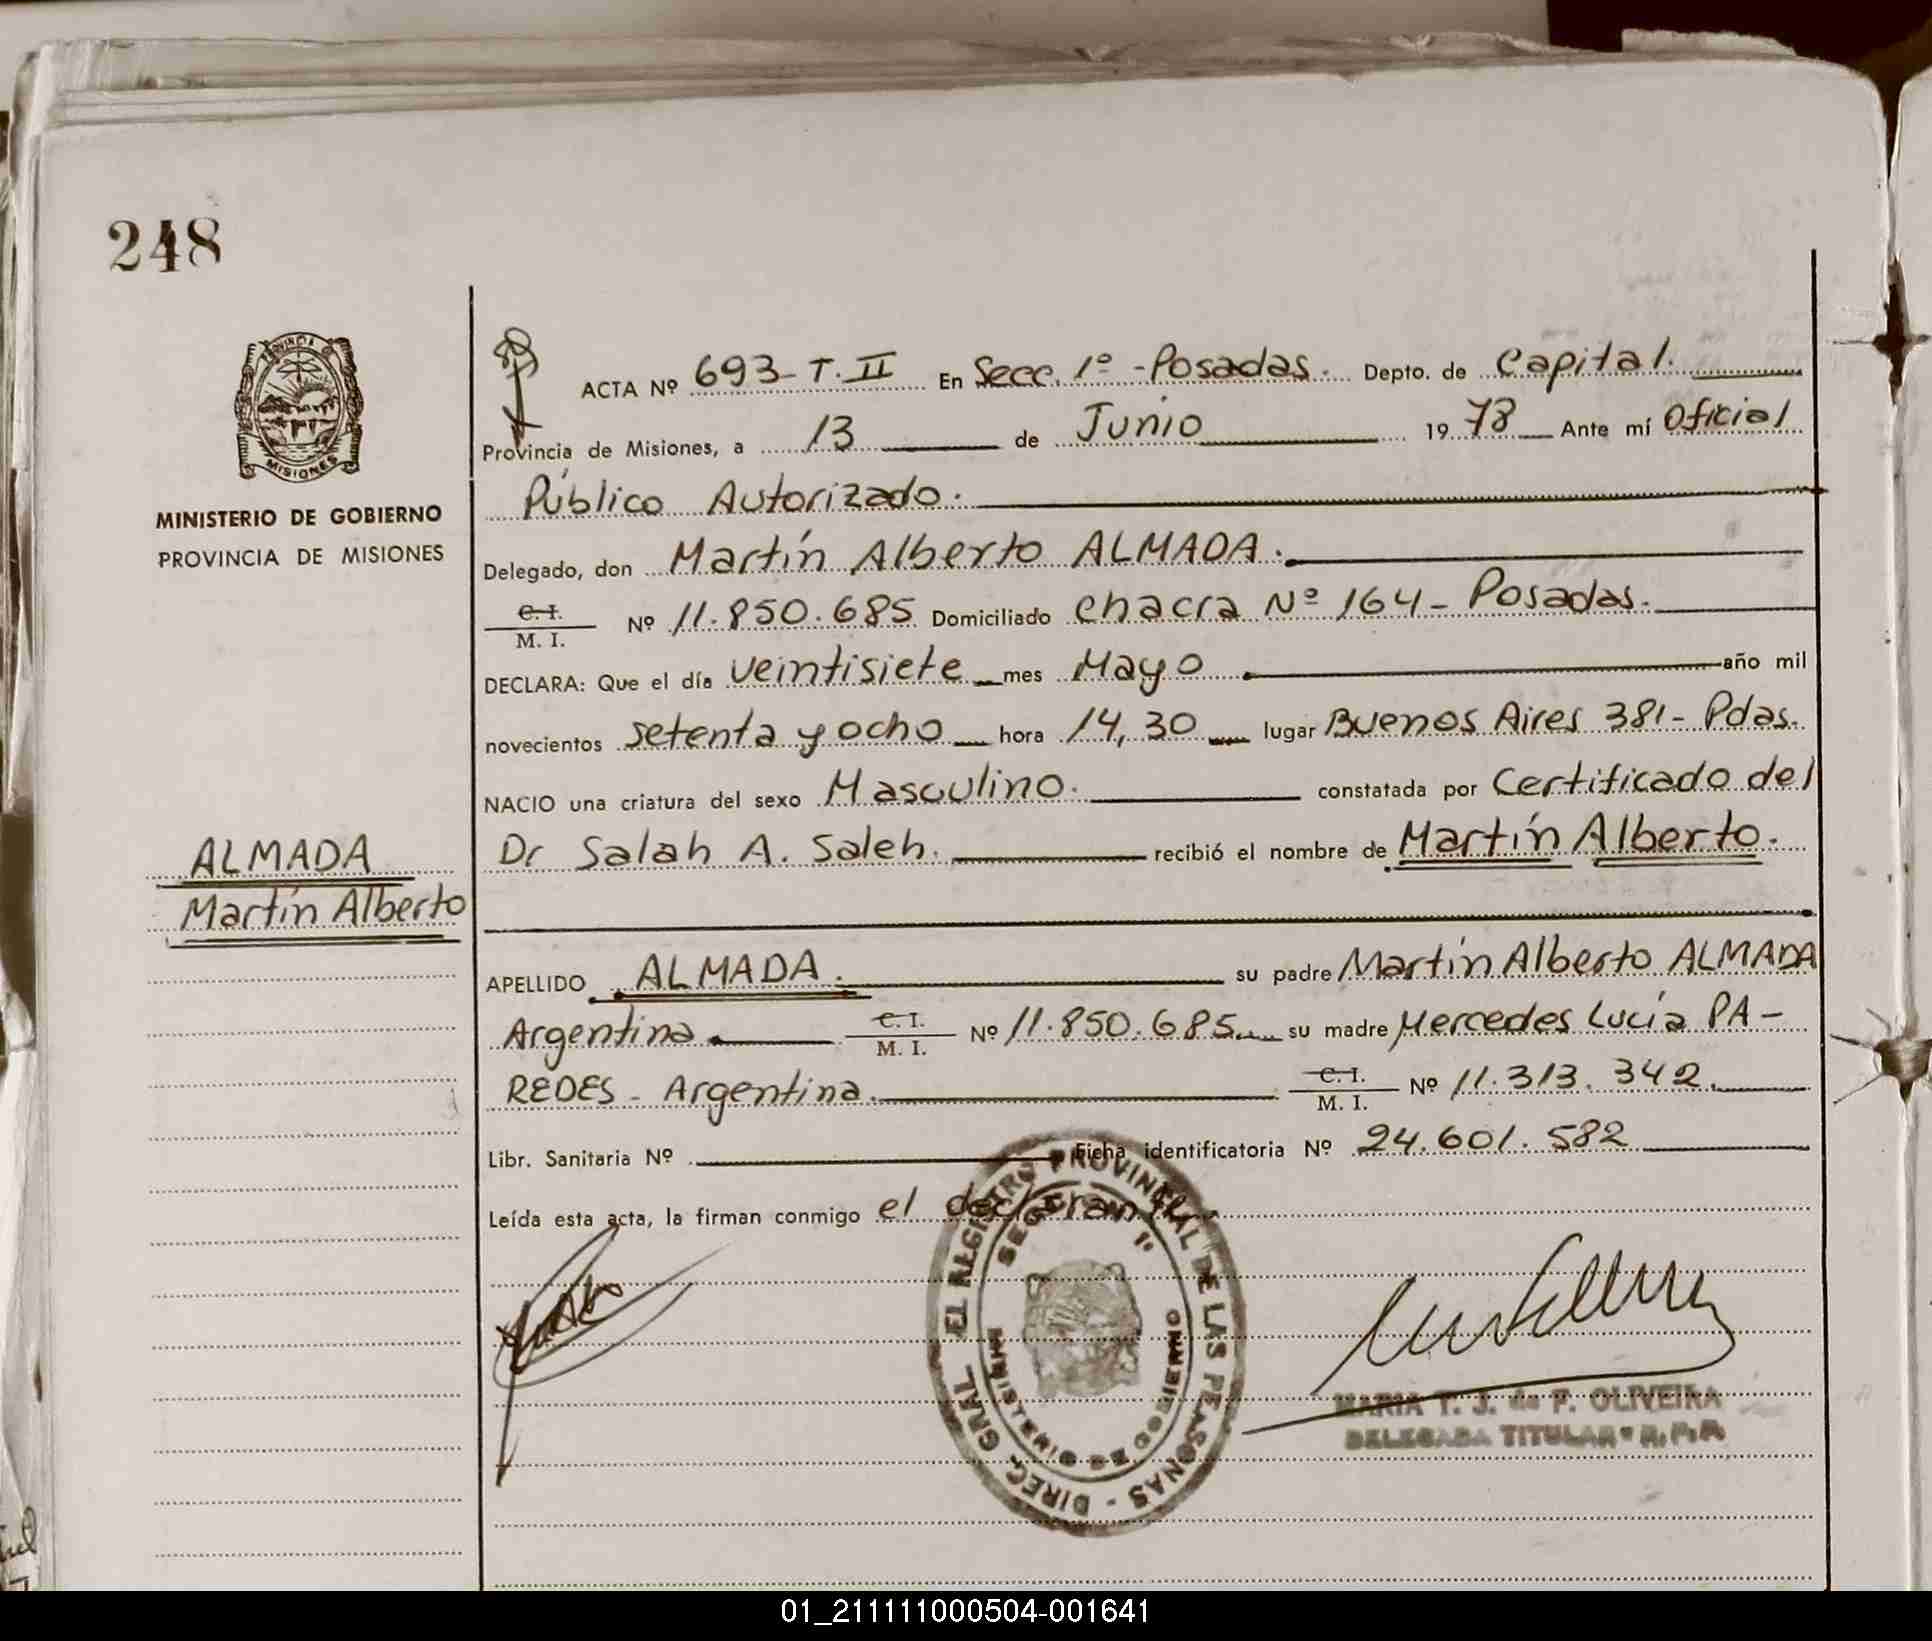 248
PROVINCIA DE
MISIONES
MINISTERIO DE GOBIERNO
PROVINCIA DE MISIONES
ALMADA
Martín Alberto
ACTA Nº 693-T.II En Secc. 1º - Posadas. Depto. de Capital.
Provincia de Misiones, a 13 de Junio 1978 Ante mí Oficial
Público Autorizado.
Delegado, don Martín Alberto ALMADA.
C. I.
M. I. Nº 11.850.685 Domiciliado chacra Nº 164 - Posadas.
DECLARA: Que el día veintisiete mes Mayo año mil
novecientos setenta y ocho hora 14,30 lugar Buenos Aires 381 - Pdas.
NACIO una criatura del sexo Masculino. constatada por Certificado del
Dr Salah A. Saleh. recibió el nombre de Martín Alberto.
APELLIDO ALMADA. su padre Martín Alberto ALMADA
Argentina C. I. M. I. Nº 11.850.685 su madre Mercedes Lucía PA-
REDES - Argentina. C. I. M. I. Nº 11.313.342.
Libr. Sanitaria Nº Ficha identificatoria Nº 24.601.582
Leída esta acta, la firman conmigo el declarante.
REGISTRO PROVINCIAL DE LAS PERSONAS - DIREC. GRAL.
1º
MINISTERIO DE GOBIERNO
MARIA T. J. de F. OLIVEIRA
DELEGADA TITULAR R. P. P.
01_211111000504-001641